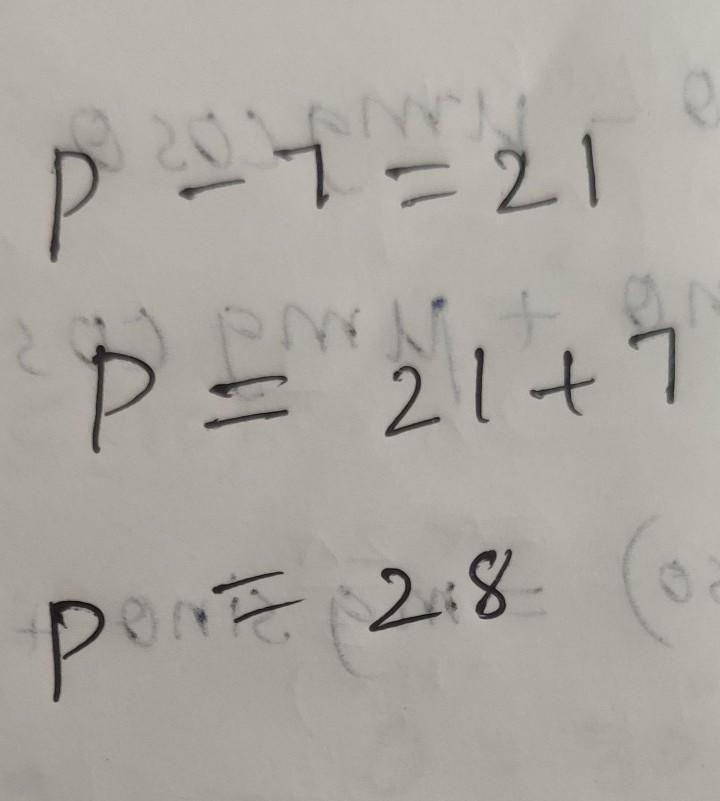 p - 7 = 21
p = 21 + 7
p = 28